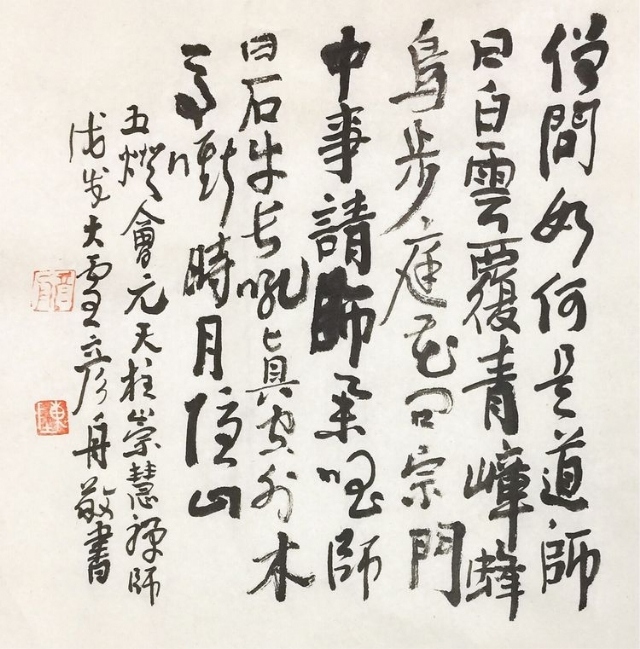 僧問如何是道師
曰白雲覆青嶂蜂
鳥步庭花問宗門
中事請師舉唱師
曰石牛長吼真空外木
馬嘶時月隱山
五燈會元天柱崇慧禪師
戊戌大雪彥舟敬書